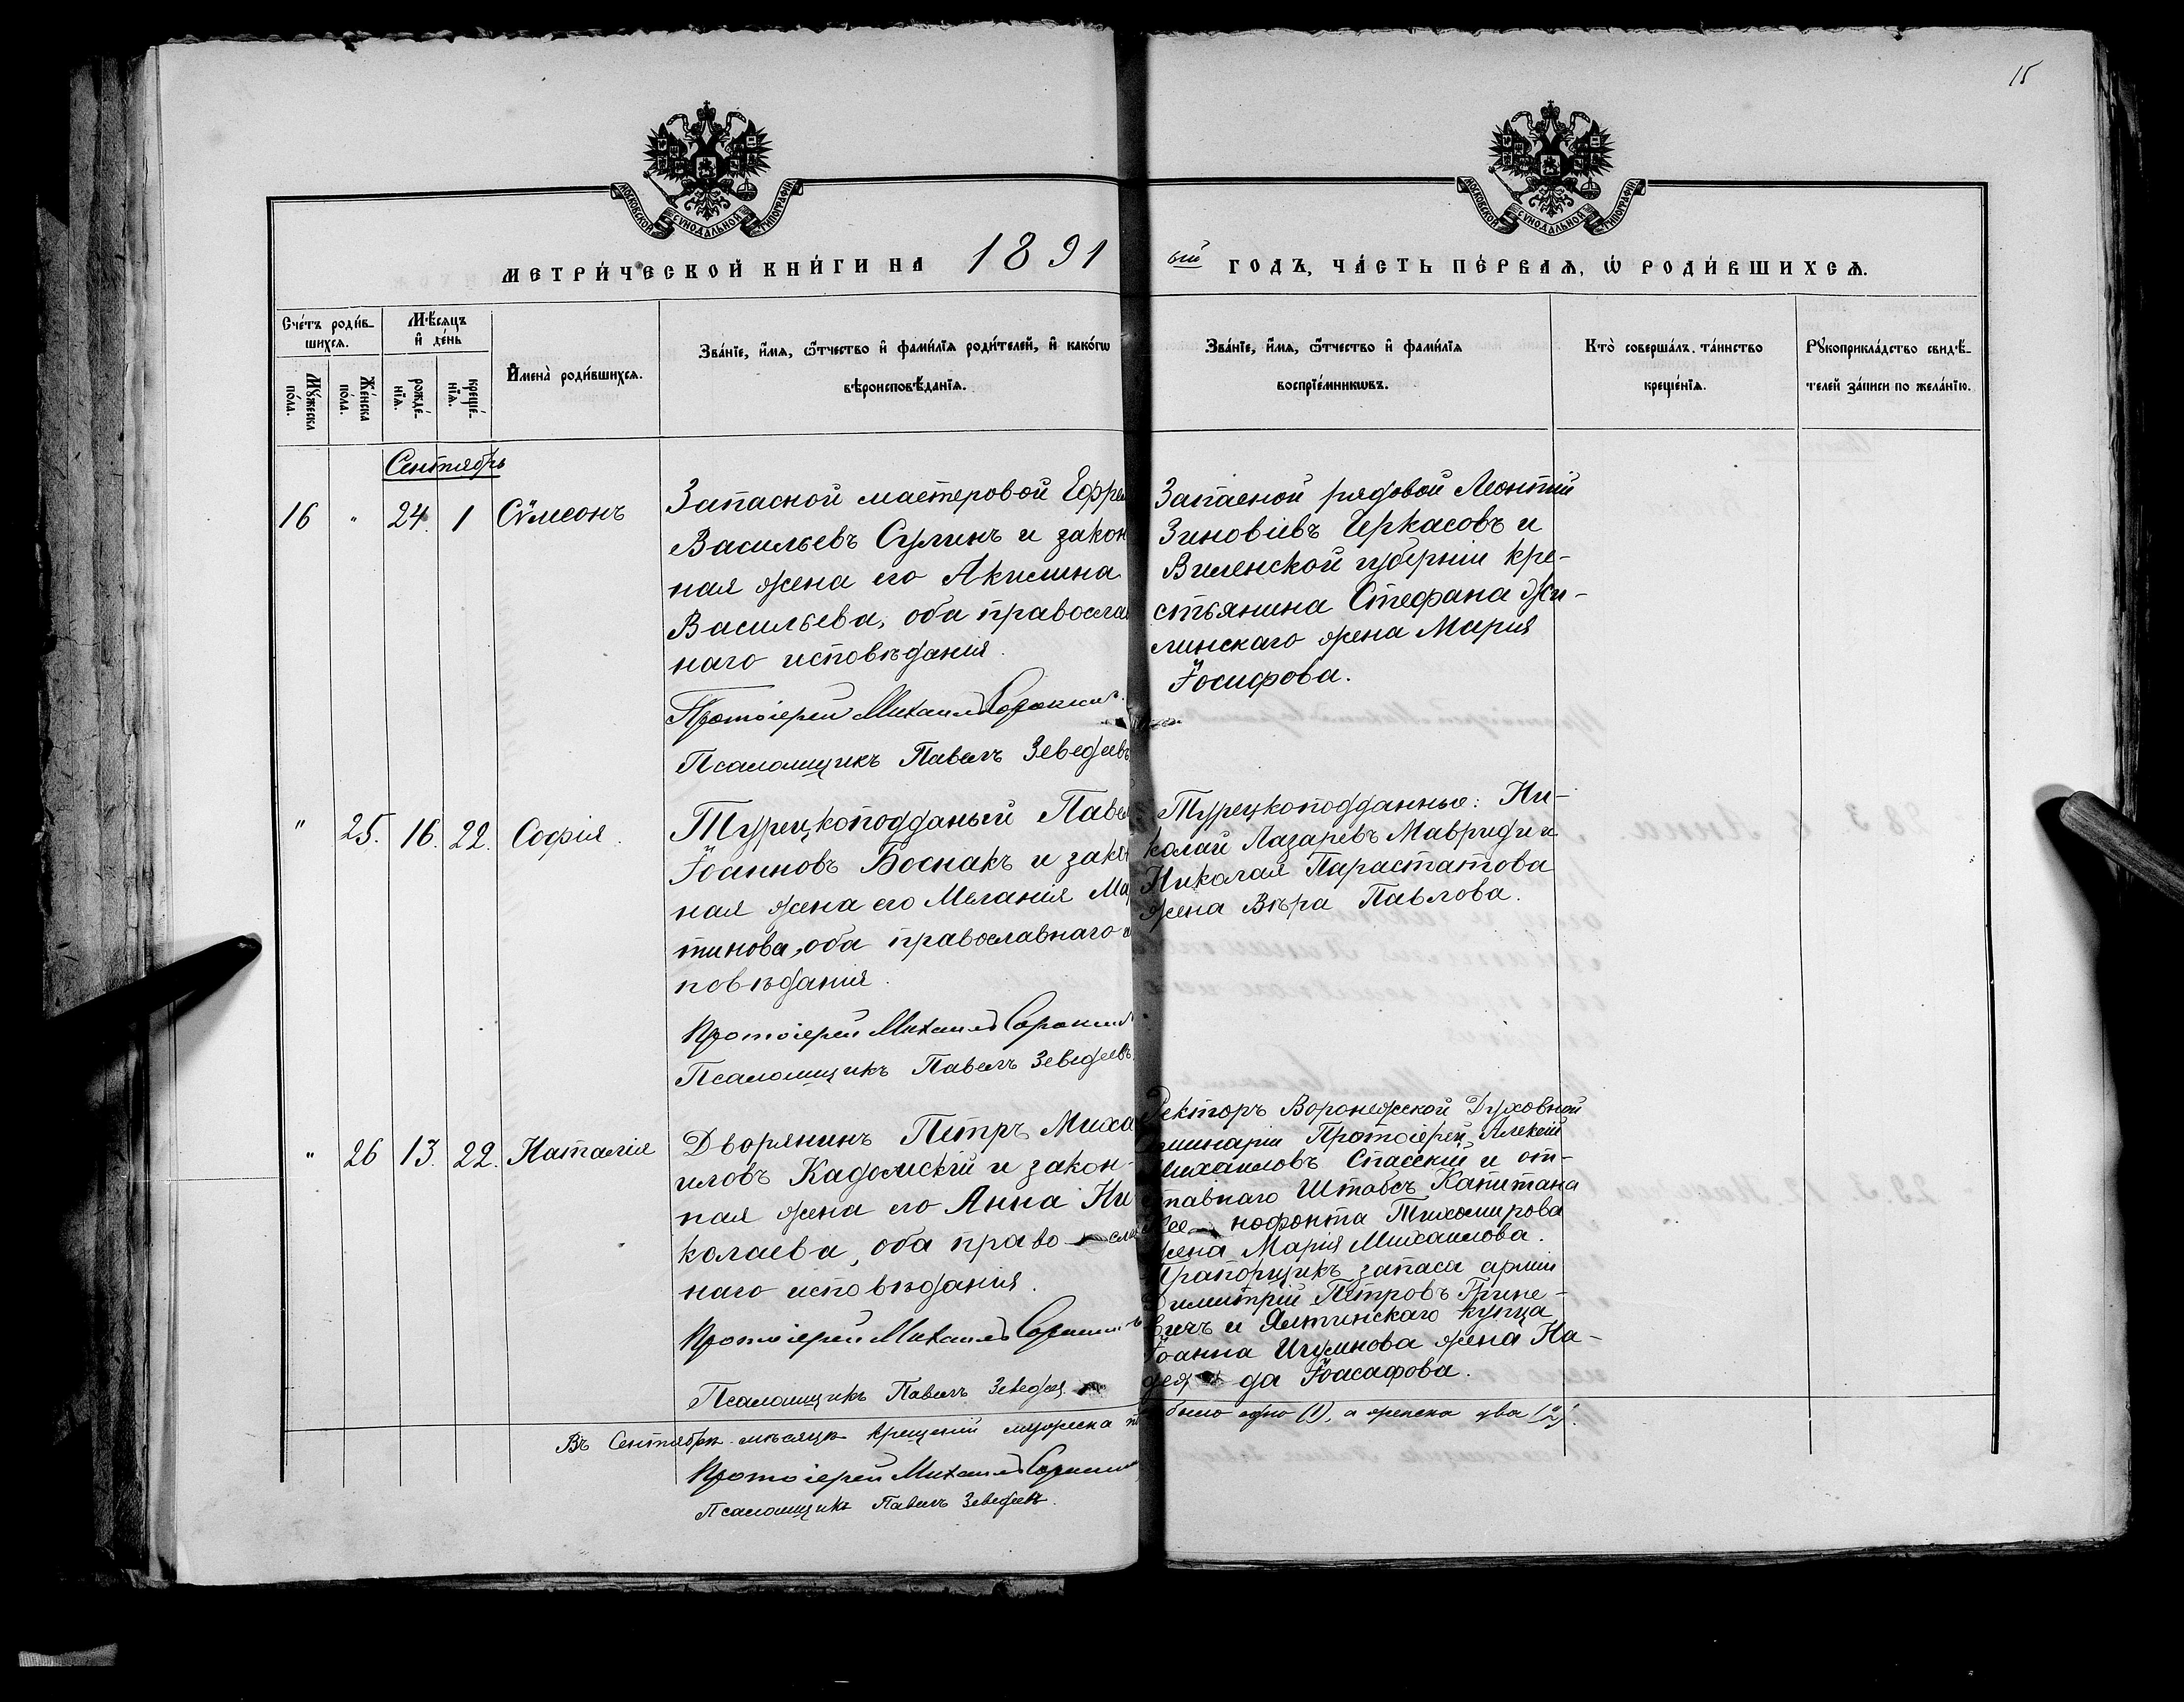 15
МОСКОВСКОЙ СѴНОДАЛЬНОЙ ТИПОГРАФІИ
МОСКОВСКОЙ СѴНОДАЛЬНОЙ ТИПОГРАФІИ
МЕТРИ́ЧЕСКОЙ КНИ́ГИ НА 1891 ый ГОДЪ, ЧА́СТЬ ПЕ́РВАѦ, Ѡ҆ РОДИ́ВШИХСѦ.
Сче́тъ роди́в-
шихсѧ.
Мꙋ́жеска
по́ла.
Же́нска
по́ла.
Мѣ́сѧцъ
и҆ де́нь
рожде́-
нїѧ.
креще́-
нїѧ.
И҆мена̀ роди́вшихсѧ.
Зва́нїе, и҆́мѧ, ѻ҆́тчество и҆ фами́лїѧ роди́телей, и҆ како́гѡ
вѣроисповѣ́данїѧ.
Зва́нїе, и҆́мѧ, ѻ҆́тчество и҆ фами́лїѧ
воспрїе́мникѡвъ.
Кто̀ соверша́лъ та́инство
креще́нїѧ.
Рꙋкоприкла́дство свидѣ́-
телей за́писи по жела́нїю.
Сентябрь
16 " 24. 1 Сѵмеонъ
Запасной мастеровой Ефрем
Васильевъ Сулинъ и закон
ная жена его Акилина
Васильева, оба православ
наго исповѣданія.
Протоіерей Михаилъ Сорокинъ.
Псаломщикъ Павелъ Зеведеевъ
Запасной рядовой Леонтій
Зиновіевъ Черкасовъ и
Виленской губерніи кре-
стьянина Стефана Жи-
линскаго жена Марія
Іосифова.
" 25. 16. 22. Софія.
Турецкоподданый Павел
Іоанновъ Боснакъ и закон
ная жена его Меланія Мар
тинова, оба православнаго ис
повѣданія.
Протоіерей Михаилъ Сорокинъ
Псаломщикъ Павелъ Зеведеевъ
Турецкоподданные: Ни-
колай Лазаревъ Мавриди и
Николая Парастатова
жена Вѣра Павлова.
" 26 13. 22. Наталія
Дворянинъ Петръ Миха
иловъ Кадомскій и закон-
ная жена его Анна Ни
колаева, оба право слав
наго исповѣданія.
Протоіерей Михаилъ Сорокинъ
Псаломщикъ Павелъ Зеведеев
Ректоръ Воронежской Духовной
Семинаріи Протоіерей Алексій
Михаиловъ Спасскій и от-
ставнаго Штабсъ Капитана
Ксе нофонта Тихомирова
жена Марія Михаилова.
Прапорщикъ запаса арміи
Димитрій Петровъ Грине-
вичъ и Ялтинскаго купца
Іоанна Игумнова жена На-
деж да Іоасафова.
Въ Сентябрѣ мѣсяцѣ крещеній мужеска по было одно (1), а женска два (2).
Протоіерей Михаилъ Сорокинъ
Псаломщикъ Павелъ Зеведеевъ.